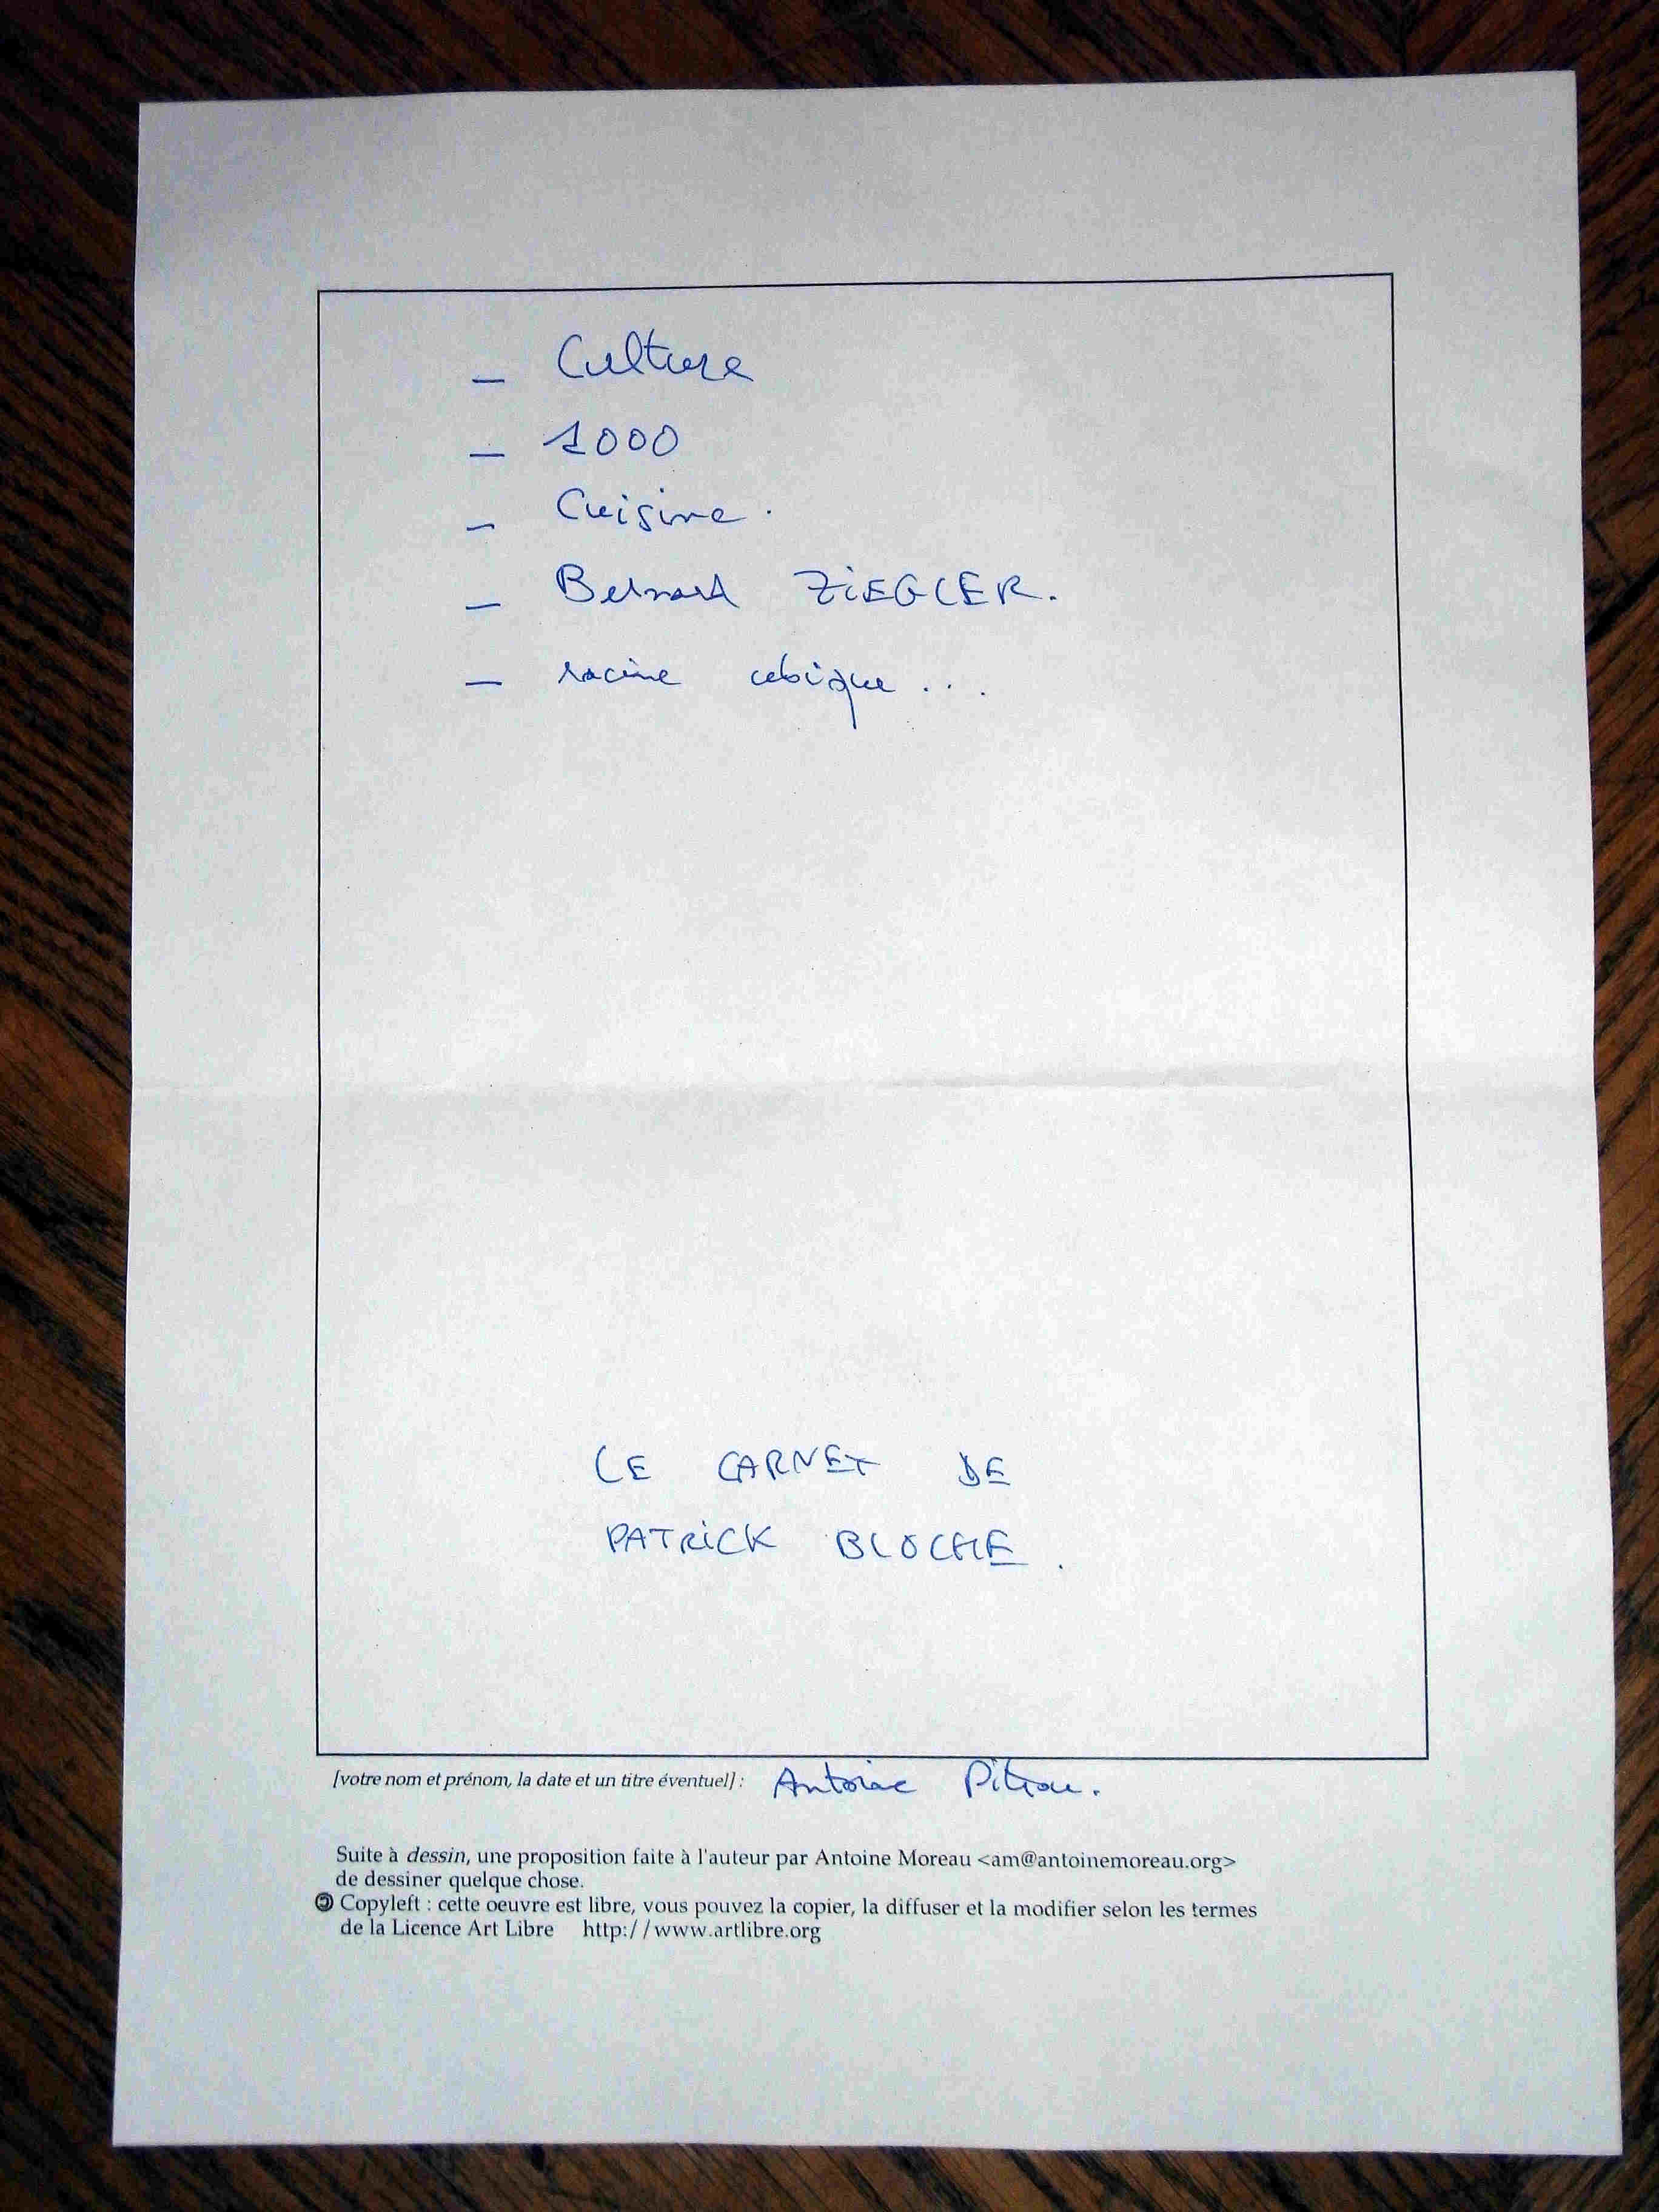 – Culture
– 1000
– Cuisine.
– Bernard ZiEGLER.
– racine cubique...
LE CARNET DE
PATRiCK BLOCHE.
[votre nom et prénom, la date et un titre éventuel] : Antoine Pitrou.
Suite à dessin, une proposition faite à l'auteur par Antoine Moreau <am@antoinemoreau.org>
de dessiner quelque chose.
Copyleft : cette oeuvre est libre, vous pouvez la copier, la diffuser et la modifier selon les termes
de la Licence Art Libre http://www.artlibre.org